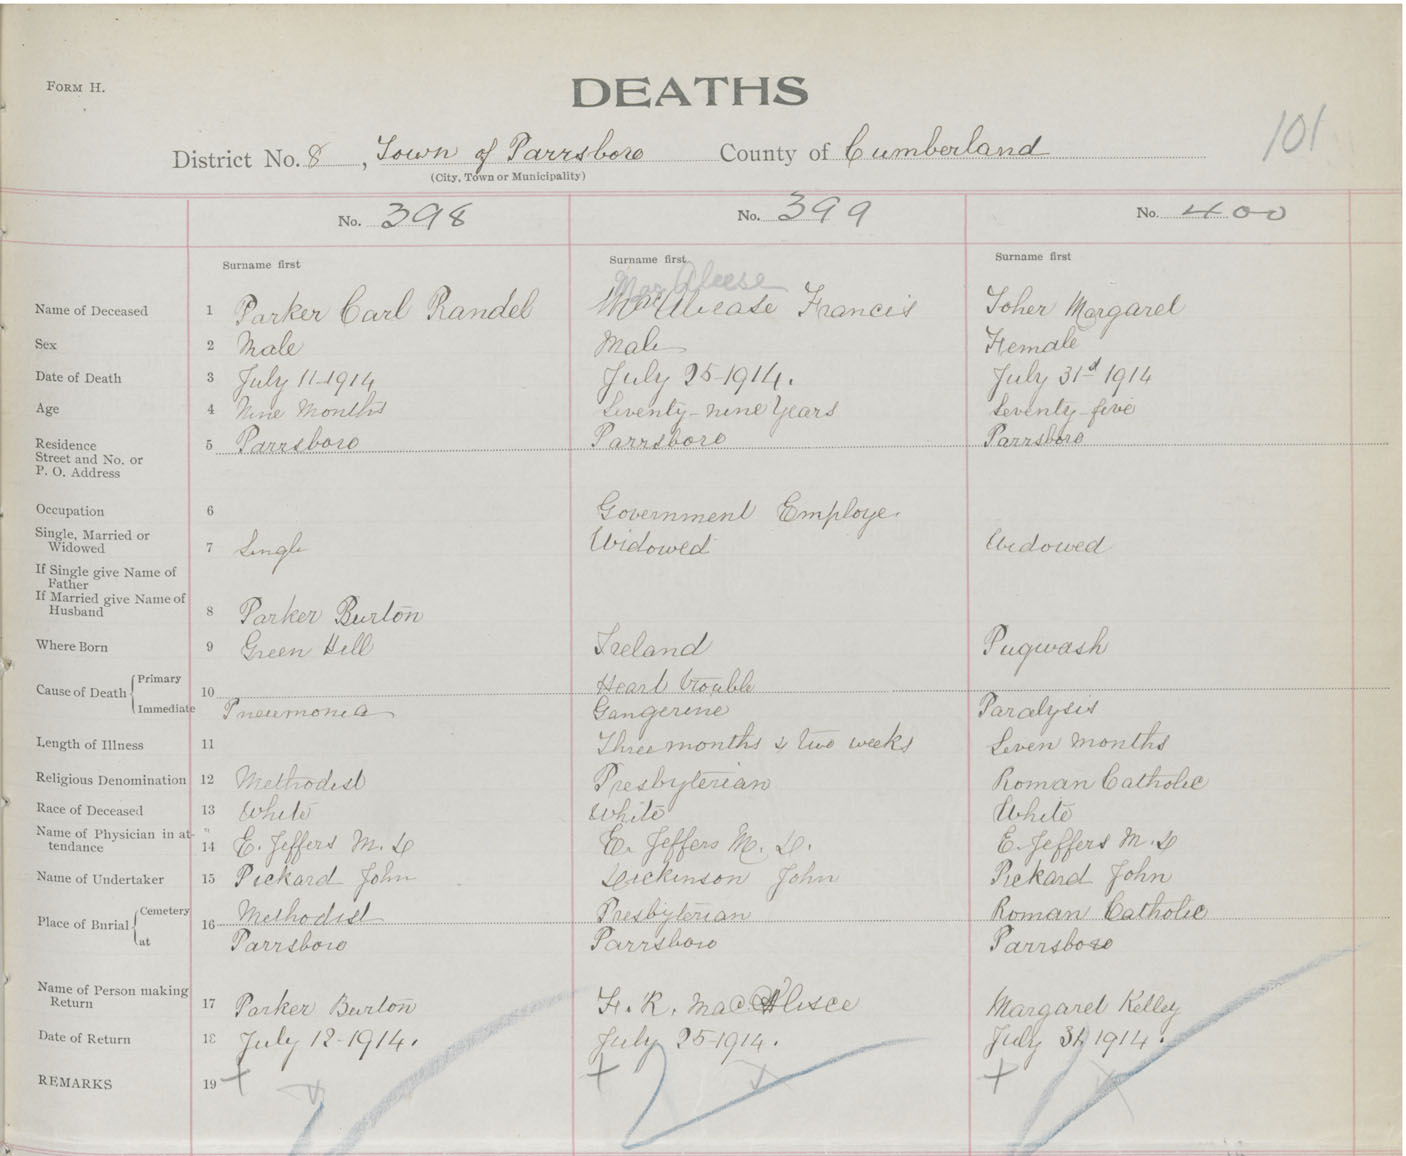 FORM H.
DEATHS
101
District No. 8, Town of Parrsboro County of Cumberland
(City, Town or Municipality)
No. 398 No. 399 No. 400
Surname first Surname first Surname first
MacAleese
Name of Deceased 1 Parker Carl Randel Francis Toher Margaret
Sex 2 Male Male Female
Date of Death 3 July 11-1914 July 25-1914. July 31st 1914
Age 4 Nine Months Seventy-nine Years Seventy-five
Residence 5 Parrsboro Parrsboro Parrsboro
Street and No. or
P. O. Address
Occupation 6 Government Employe.
Single, Married or
Widowed 7 Single Widowed Widowed
If Single give Name of
Father
If Married give Name of
Husband 8 Parker Burton
Where Born 9 Green Hill Ireland Pugwash
Cause of Death Primary 10 Heart trouble
Immediate Pneumonia Gangerine Paralysis
Length of Illness 11 Three months & two weeks Seven months
Religious Denomination 12 Methodist Presbyterian Roman Catholic
Race of Deceased 13 White White White
Name of Physician in at-
tendance 14 E. Jeffers M. D E. Jeffers M. D. E. Jeffers M. D
Name of Undertaker 15 Pickard John Dickinson John Pickard John
Place of Burial Cemetery 16 Methodist Presbyterian Roman Catholic
at Parrsboro Parrsboro Parrsboro
Name of Person making
Return 17 Parker Burton F. R. Margaret Kelley
Date of Return 18 July 12-1914. July 25-1914. July 31, 1914.
REMARKS 19 + + +